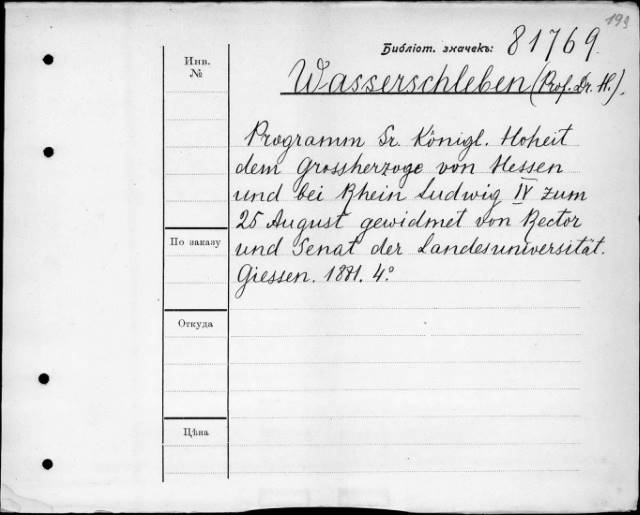 193
Библіот. значекъ: 81769.
Инв.
№
Wasserschleben (Prof. Dr. H.).
Programm Sr. Königl. Hoheit
dem Grossherzoge von Hessen
und bei Rhein Ludwig IV zum
25 August gewidmet von Rector
По заказу
und Senat der Landesuniversität.
Giessen. 1881. 4°
Откуда
Цѣна